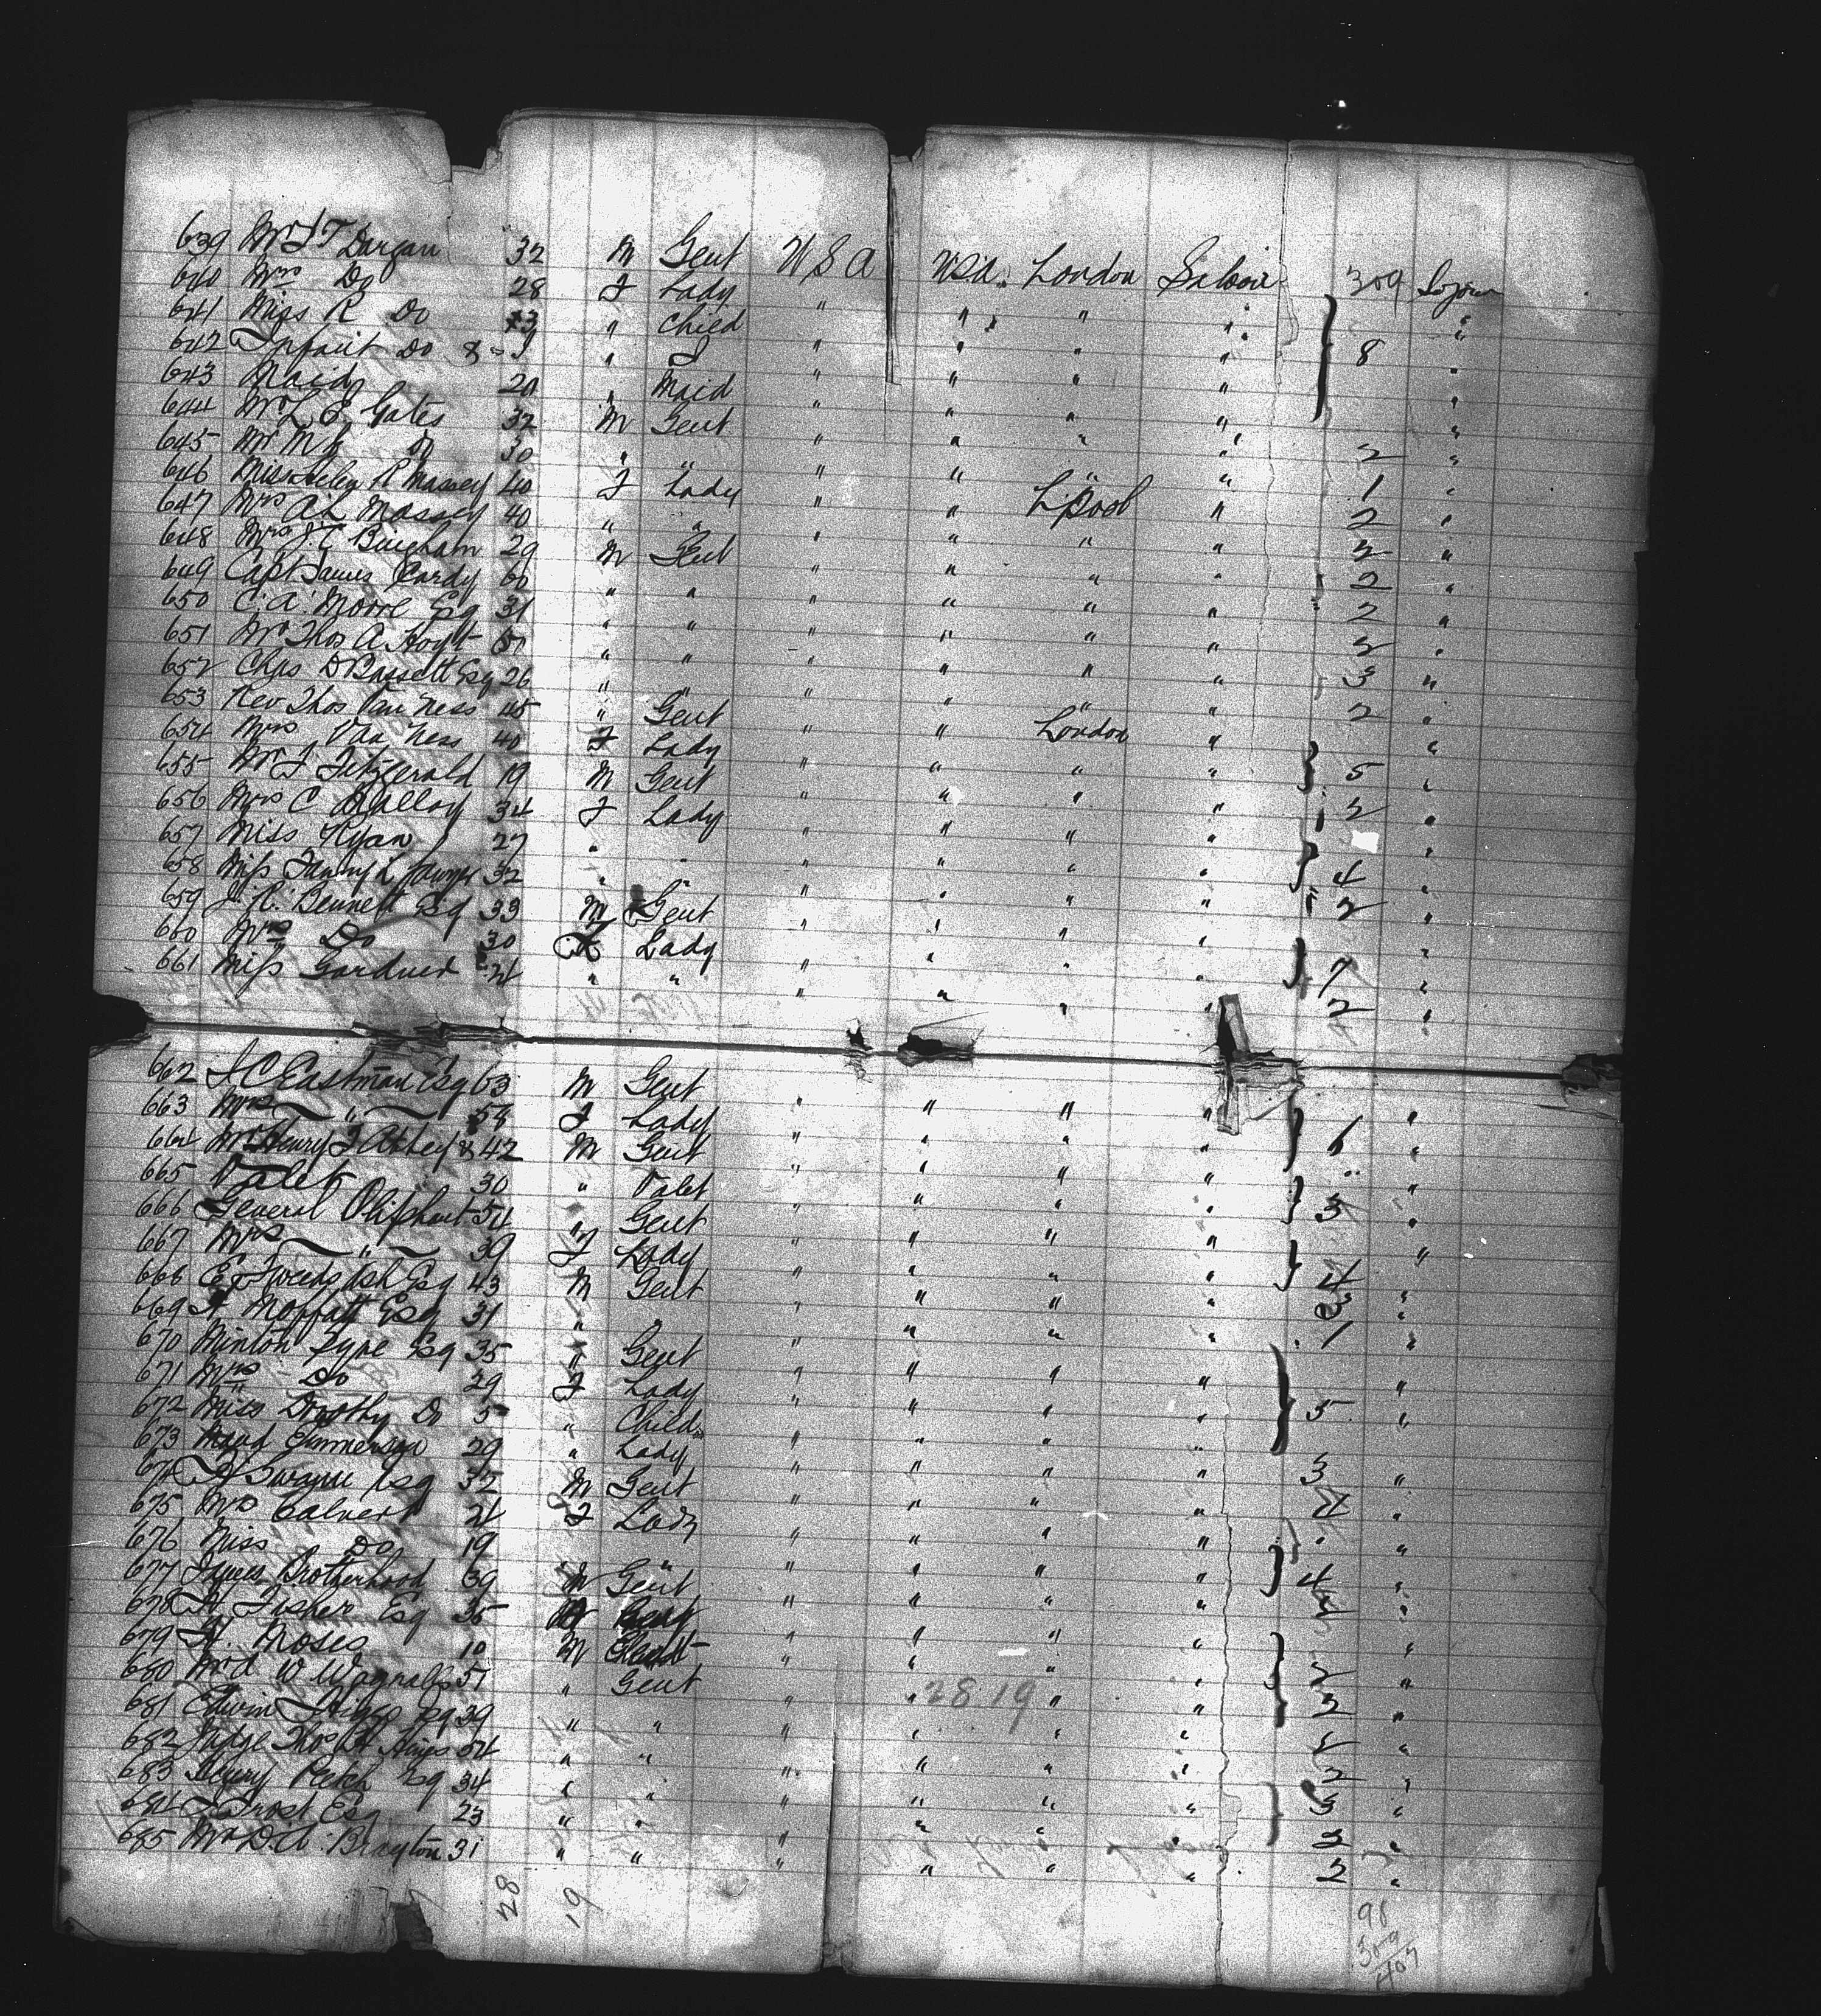 639 Mr J T Dargan 32 M Gent U S A USA London Saloon 309 Sojour
640 Mrs Do 28 F Lady " " " " "
641 Miss R Do 3 " Child " " " " "
642 Infant Do " " " " " 8 "
643 Maid 20 " Maid " " " " "
644 Mr L E Gates 32 M Gent " " " " "
645 Mr M K Do 30 " " " " " " 2 "
646 Miss Helen R Massey 40 F Lady " " L'pool " 1 "
647 Mrs A L Massey 40 " " " " " " 2 "
648 Mr J T Bingham 29 M Gent " " " " 2 "
649 Capt James Pardy 60 " " " " " " 2 "
650 C. A. Moore Esq 31 " " " " " " 2 "
651 Mr Thos A Hoyt 50 " " " " " " 2 "
652 Chas D Bassett Esq 26 " " " " " " 3 "
653 Rev Thos Van Ness 45 " Gent " " London " 2 "
654 Mrs Van Ness 40 F Lady " " " " "
655 Mr J Fitzgerald 19 M Gent " " " " 5 "
656 Mrs C Malloy 34 F Lady " " " " 2 "
657 Miss Ryan 27 " " " " " " "
658 Miss Fanny L 32 " " " " " " 4 "
659 J. R. Bennett Esq 33 M Gent " " " " 2 "
660 Mrs Do 30 F Lady " " " " "
661 Miss Gardner 24 " " " " " " 7 "
2 "
662 J C Eastman Esq 63 M Gent " " " " "
663 Mrs " 58 F Lady " " " " "
664 Mr Henry J Abbey & 42 M Gent " " " " "
665 Valet 30 " Valet " " " " "
666 General Oliphant 54 " Gent " " " " 3 "
667 Mrs " 39 F Lady " " " " "
668 Esq 43 M Gent " " " " 4 "
669 Moffatt Esq 31 " " " " " " "
670 Minton Pyne Esq 35 " Gent " " " " 1 "
671 Mrs Do 29 F Lady " " " " "
672 Miss Dorothy Do 5 " Child " " " " 5 "
673 Maud Emmerson 29 " Lady " " " " "
674 Swann Esq 32 M Gent " " " " 3 "
675 Mrs Calvert 24 F Lady " " " " 4 "
676 Miss Do 19 " " " " " " "
677 James Brotherhood 39 M Gent " " " " 4 "
678 Fisher Esq 35 M Gent " " " " 2 "
679 Moses 10 M " " " " "
680 W Wagnalls 51 " Gent " " " " 2 "
2819
681 Edwin Esq 39 " " " " " " 2 "
682 Judge Thos 54 " " " " " " 2 "
683 Henry Petch Esq 34 " " " " " " 2 "
684 Frost Esq 23 " " " " " " 3 "
685 Mr D. A. Brayton 31 " " " " " " 2 "
2 "
28 19
98
309
407